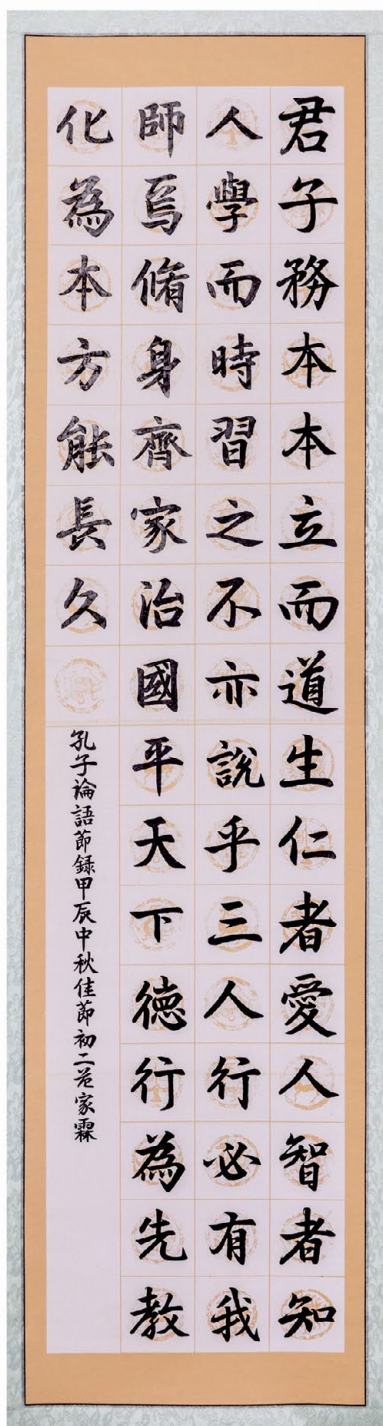 君子務本本立而道生仁者愛人智者知
人學而時習之不亦說乎三人行必有我
師焉脩身齊家治國平天下德行為先教
化為本方能長久
孔子論語節錄甲辰中秋佳節初二范家霖